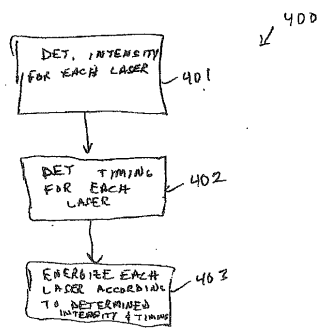 400
DET. INTENSITY
FOR EACH LASER
401
DET TIMING
FOR EACH
LASER
402
ENERGIZE EACH
LASER ACCORDING
TO DETERMINED
INTENSITY & TIMING
403